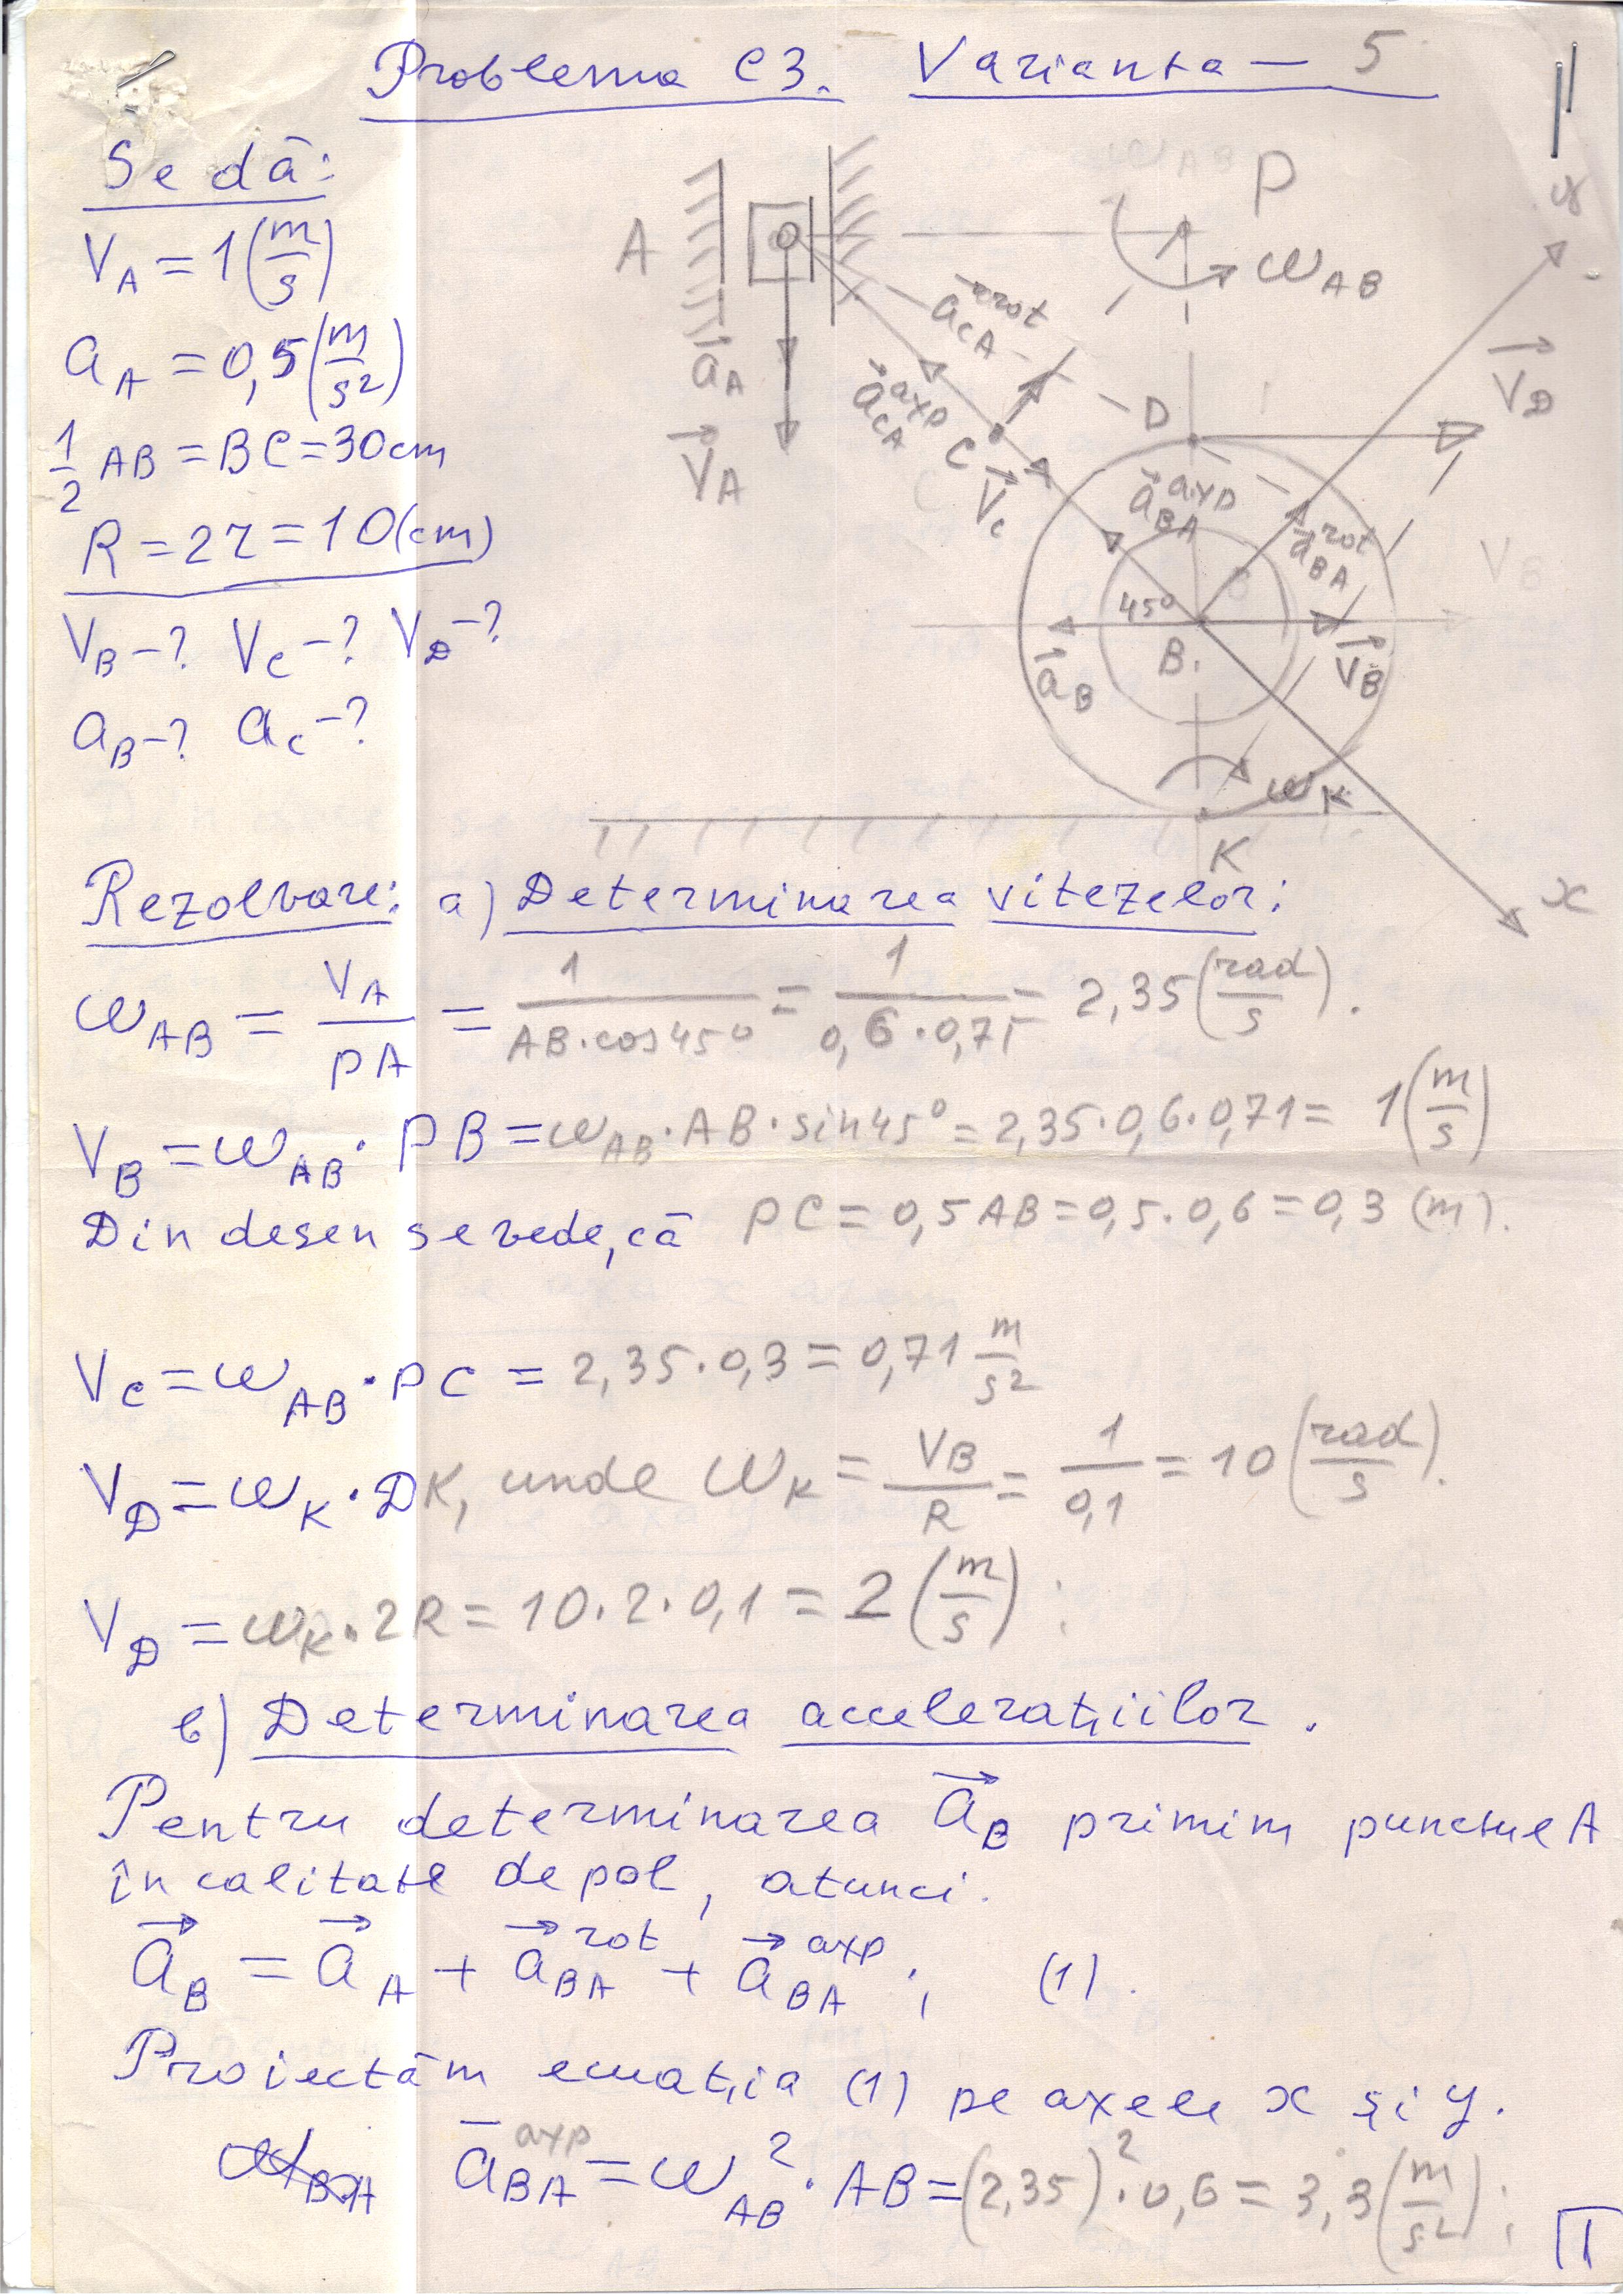 Problema C3. Varianta – 5
Se dă:
V_A = 1 (m/s)
a_A = 0,5 (m/s²)
1/2 AB = BC = 30 cm
R = 2r = 10 (cm)
V_B – ? V_C – ? V_D – ?
a_B – ? a_C – ?
A
P
ω_AB
y
a_CA^rot
a_A
V_A
a_CA^axp
C
V_C
D
V_D
a_BA^axp
a_BA^rot
45°
B
a_B
V_B
ω_K
K
x
Rezolvare: a) Determinarea vitezelor:
ω_AB = V_A / PA = 1 / (AB·cos45°) = 1 / (0,6·0,71) = 2,35 (rad/s).
V_B = ω_AB · PB = ω_AB · AB · sin45° = 2,35·0,6·0,71 = 1 (m/s)
Din desen se vede, că PC = 0,5 AB = 0,5·0,6 = 0,3 (m).
V_C = ω_AB · PC = 2,35·0,3 = 0,71 m/s²
V_D = ω_K · DK, unde ω_K = V_B / R = 1 / 0,1 = 10 (rad/s).
V_D = ω_K · 2R = 10·2·0,1 = 2 (m/s):
b) Determinarea accelerațiilor.
Pentru determinarea a_B primim punctul A
în calitate de pol, atunci.
a_B = a_A + a_BA^rot + a_BA^axp; (1).
Proiectăm ecuația (1) pe axele x și y.
a_BA^axp = ω_AB² · AB = (2,35)² · 0,6 = 3,3 (m/s²);
1